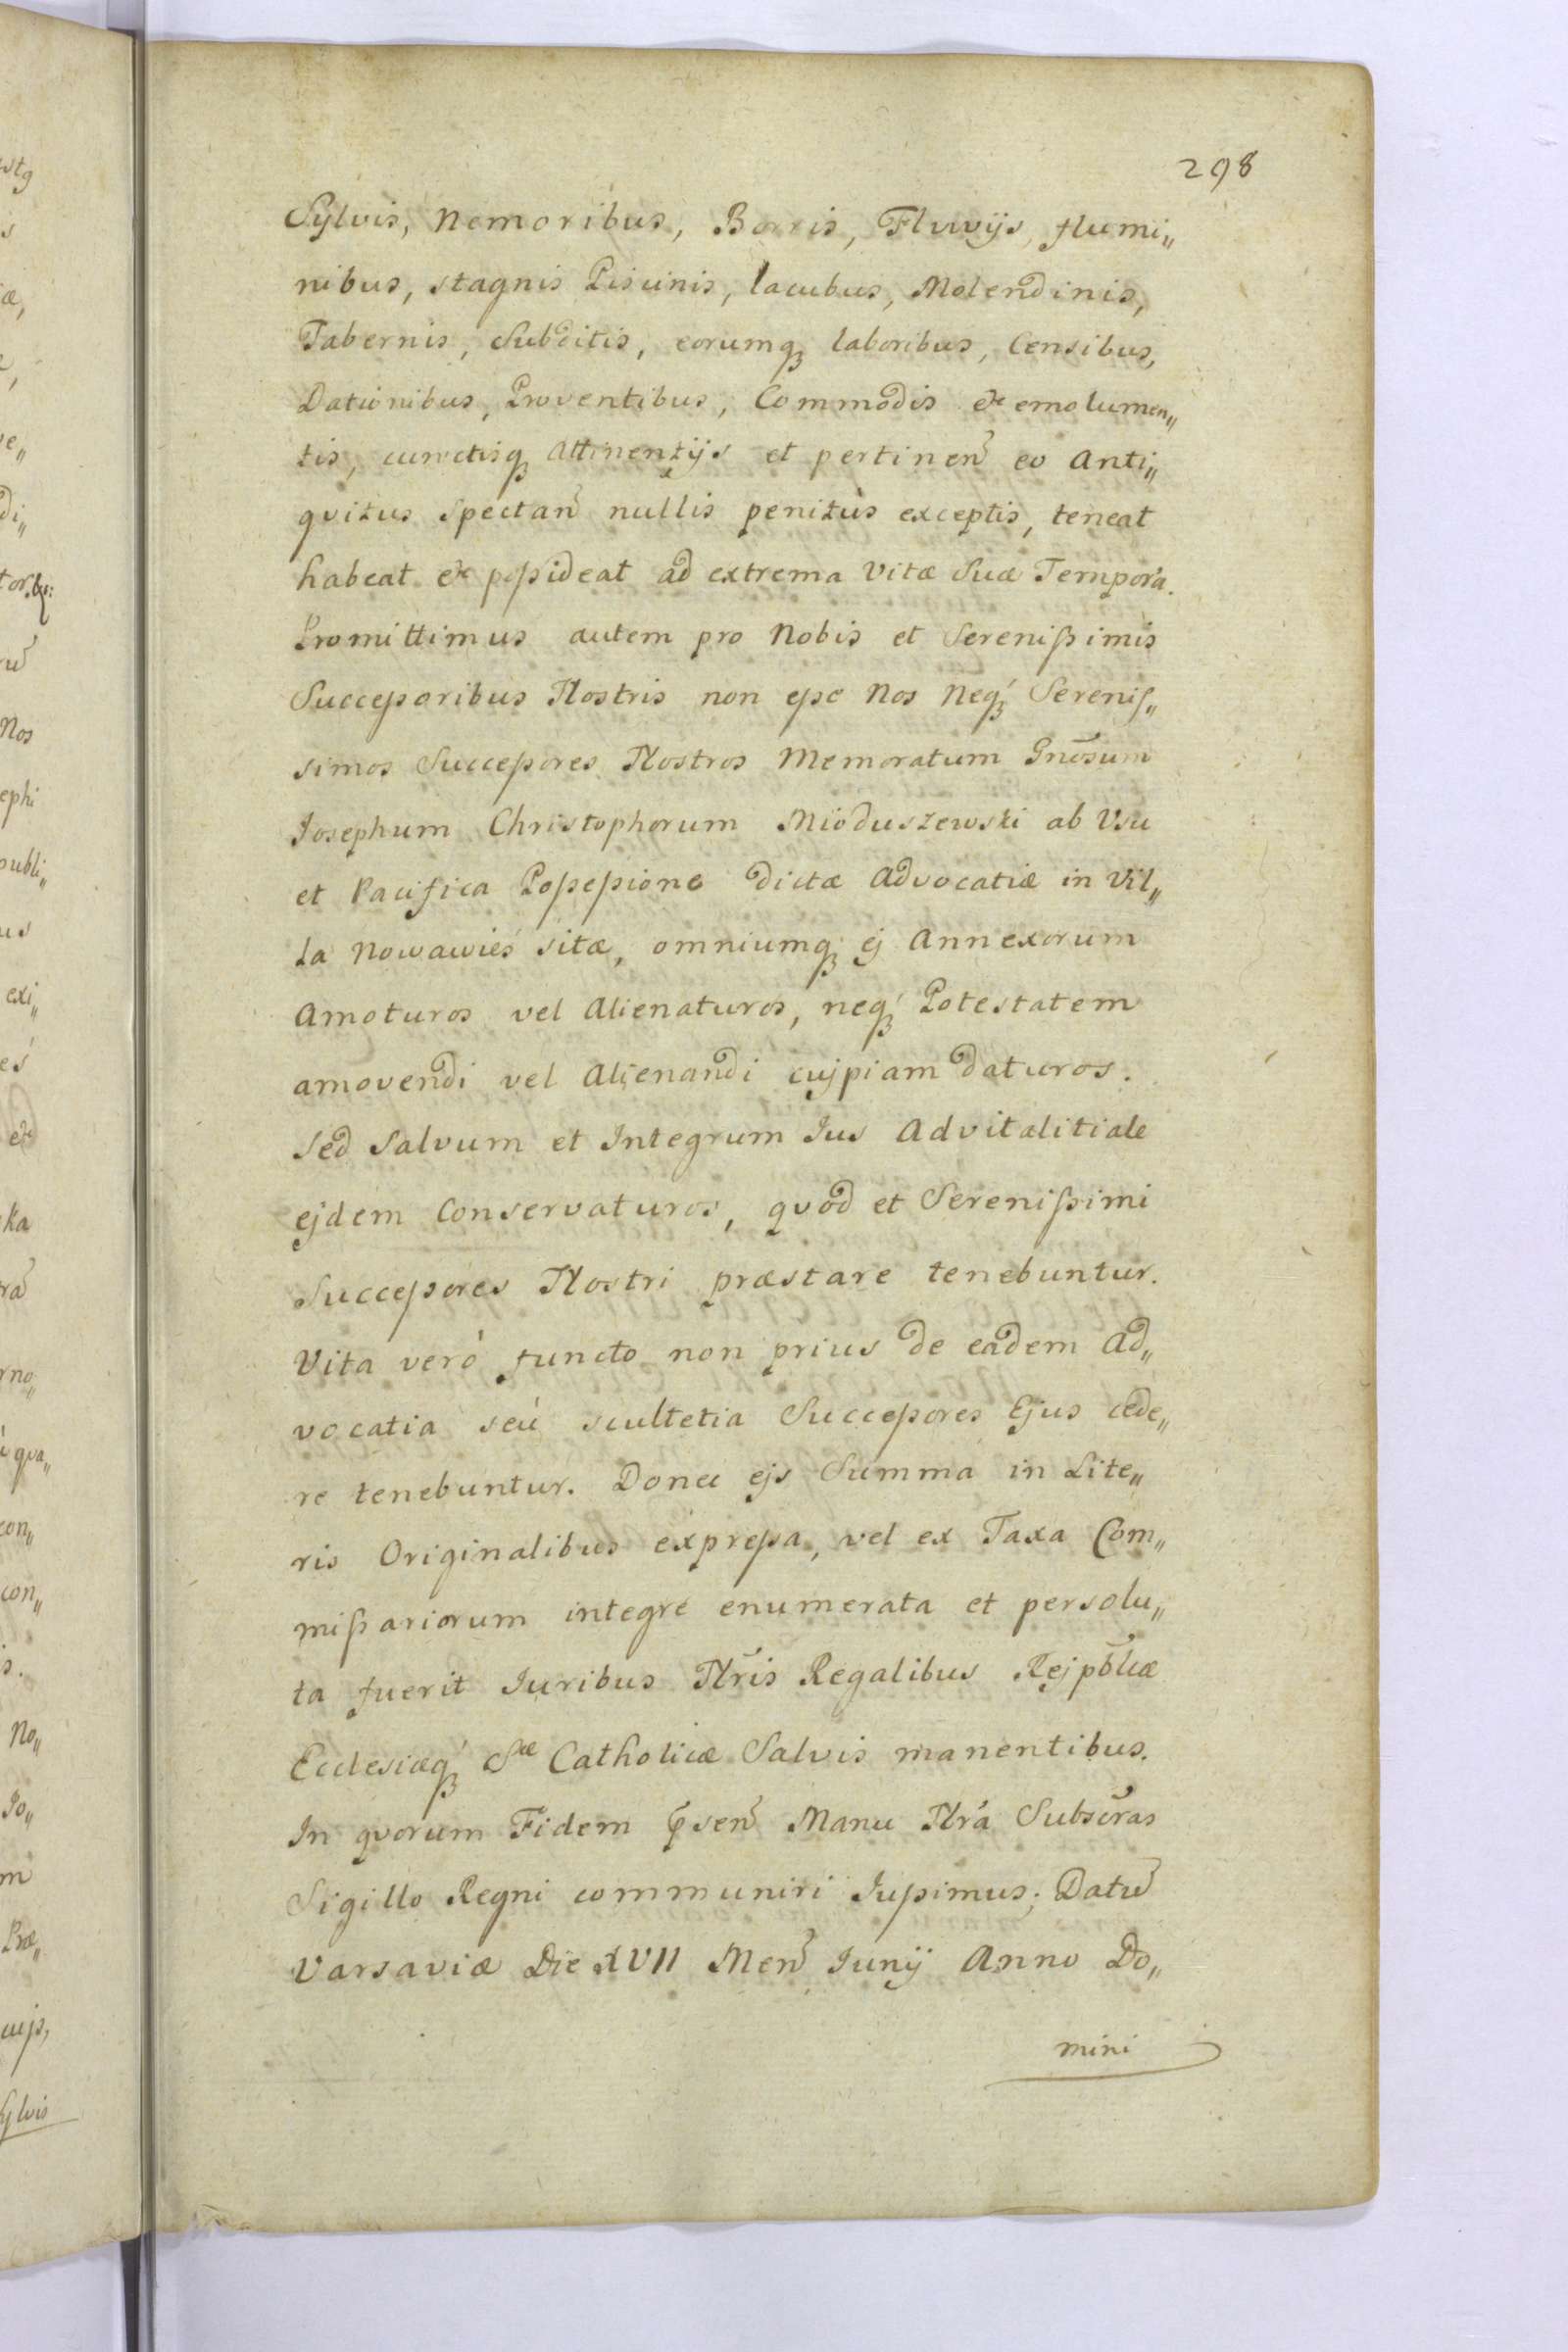 298
Sÿlvis, Nemoribus, Borris, Fluvÿs, flumi„
nibus, stagnis Piscinis, lacubus, Molendinis,
Tabernis, Subditis, eorumq₃ laboribus, Censibus,
Dationibus, Proventibus, Commodis & emolumen„
tis, cunctisq₃ Attinentÿs et pertinen̄ eo Anti„
qvitus Spectan̄ nullis penitùs exceptis, teneat
habeat & poßideat ad extrema Vitæ Suæ Tempora.
Promittimus autem pro Nobis et Serenißimis
Succeßoribus Nostris non eße Nos Neq₃́ Sereniſ„
simos Succeßores Nostros Memoratum Gn̄osum
Josephum Christophorum Mioduszewski ab Usu
et Pacifica Poßeßione dictæ Advocatiæ in Vil„
la Nowawieś sitæ, omniumq₃ ej Annexorum
Amoturos vel Alienaturos, neq₃́ Potestatem
amovendi vel Alienandi cujpiam daturos.
Sed Salvum et Integrum Jus Advitalitiale
ejdem Conservaturos, qvod et Serenißimi
Succeßores Nostri præstare tenebuntur.
Vita verò functo non prius de eadem Ad„
vocatia seu scultetia Succeßores Ejus cede„
re tenebuntur. Donec ejs Summa in Lite„
ris Originalibus expreßa, vel ex Taxa Com„
mißariorum integrè enumerata et persolu„
ta fuerit Juribus Nr̄is Regalibus Rejpb̄licæ
Ecclesiæq₃́ Sæ Catholicæ Salvis manentibus.
In qvorum Fidem p̄sen̄ Manu Nr̄a Subscr̄as
Sigillo Regni communiri Jußimus. Datū
Varsaviæ Die XVII Men̄ Junÿ Anno Do„
mini